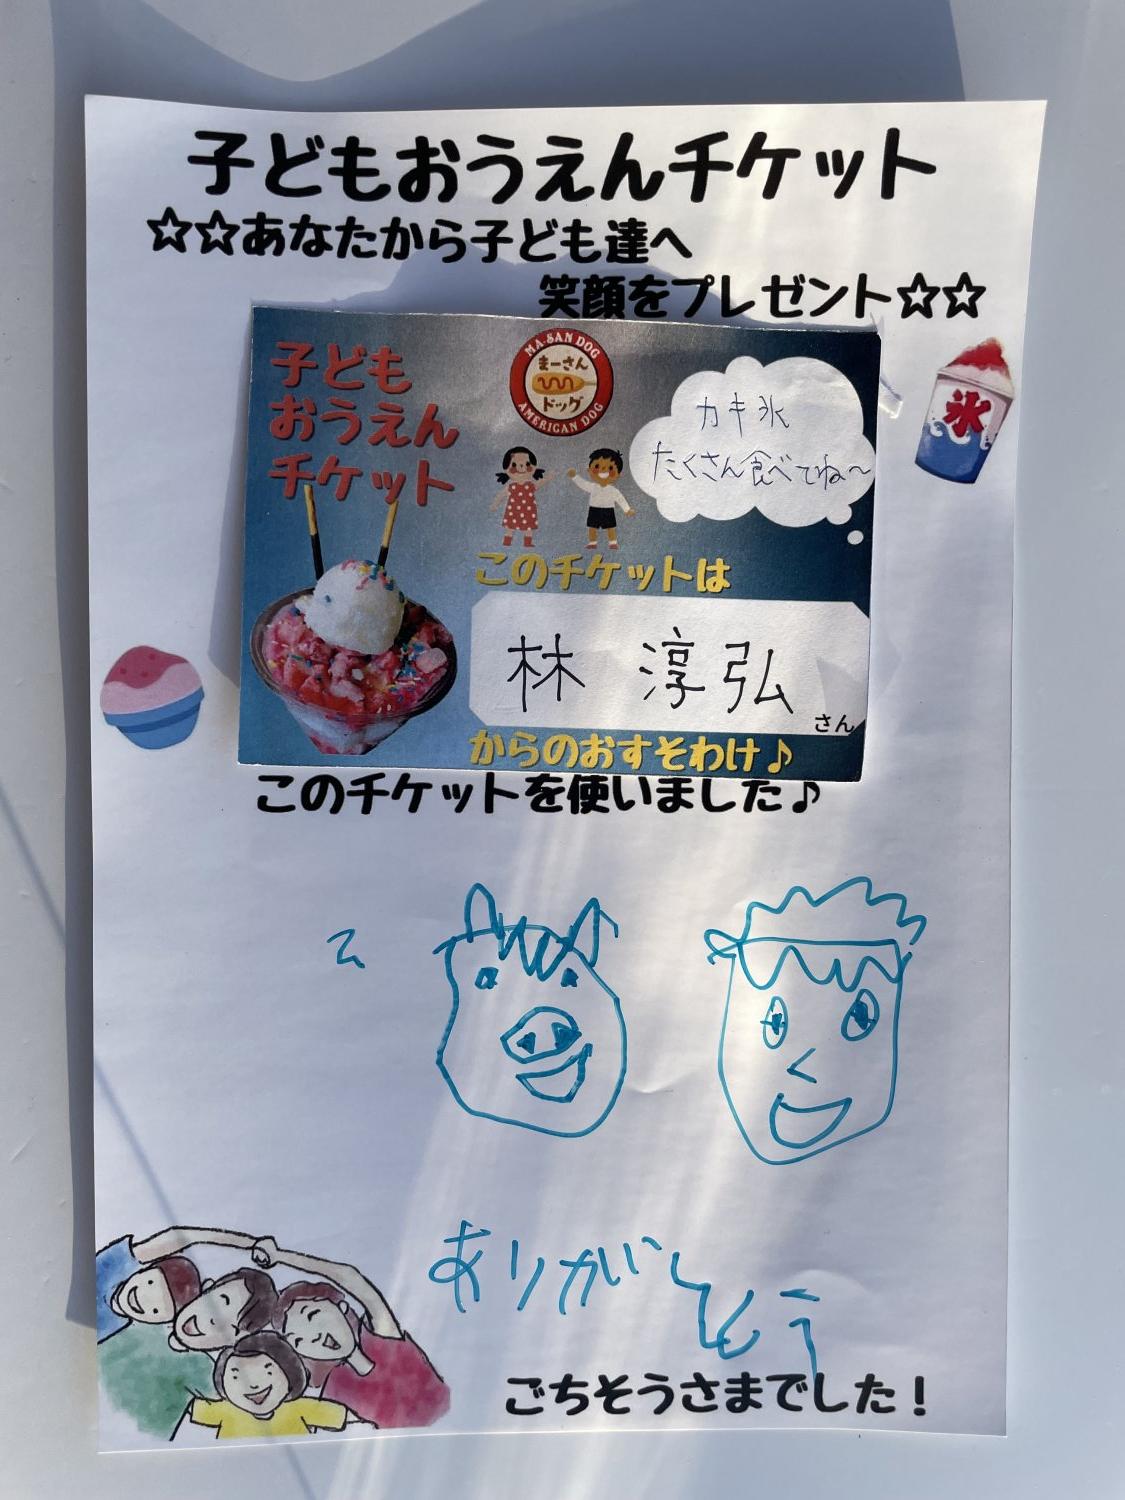 子どもおうえんチケット
☆☆あなたから子ども達へ
笑顔をプレゼント☆☆
子ども
おうえん
チケット
MA-SAN DOG
まーさん
ドッグ
AMERICAN DOG
カキ氷
たくさん食べてね〜
氷
このチケットは
林 淳弘
さん
からのおすそわけ♪
このチケットを使いました♪
ありがとう
ごちそうさまでした!